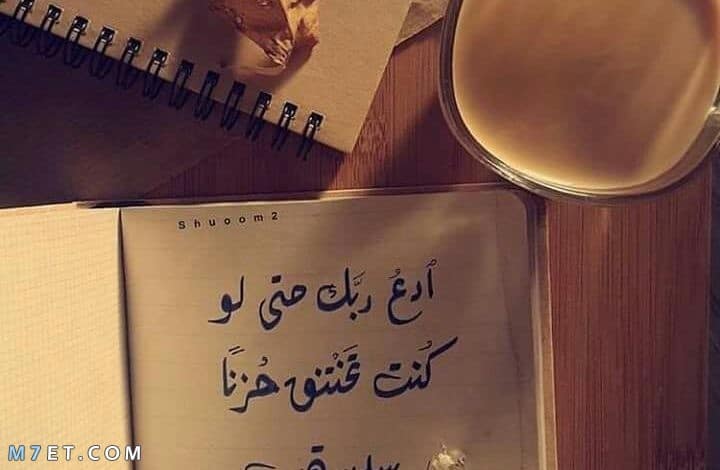 Shuoom2
ٱدعُ ربَّك حتى لو
كُنت تَختنق حُزنًا
M7ET.COM